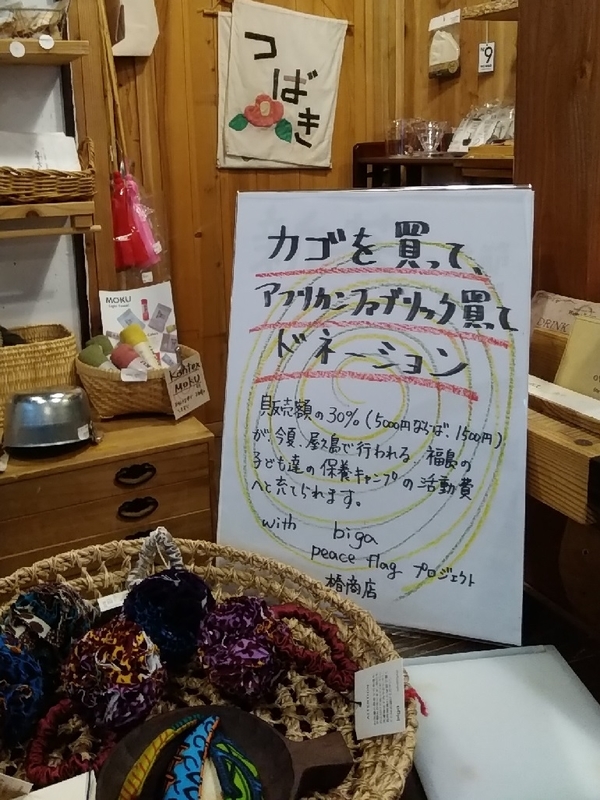 つばき
9
MOKU
カゴを買って、
アフリカンファブリック買って
ドネーション
販売額の30%(5000円ならば1500円)
が今夏、屋久島で行われる、福島の
子ども達の保養キャンプの活動費
へと充てられます。
with biga
peace flag プロジェクト
椿商店
Kontex
Moku
DRINK